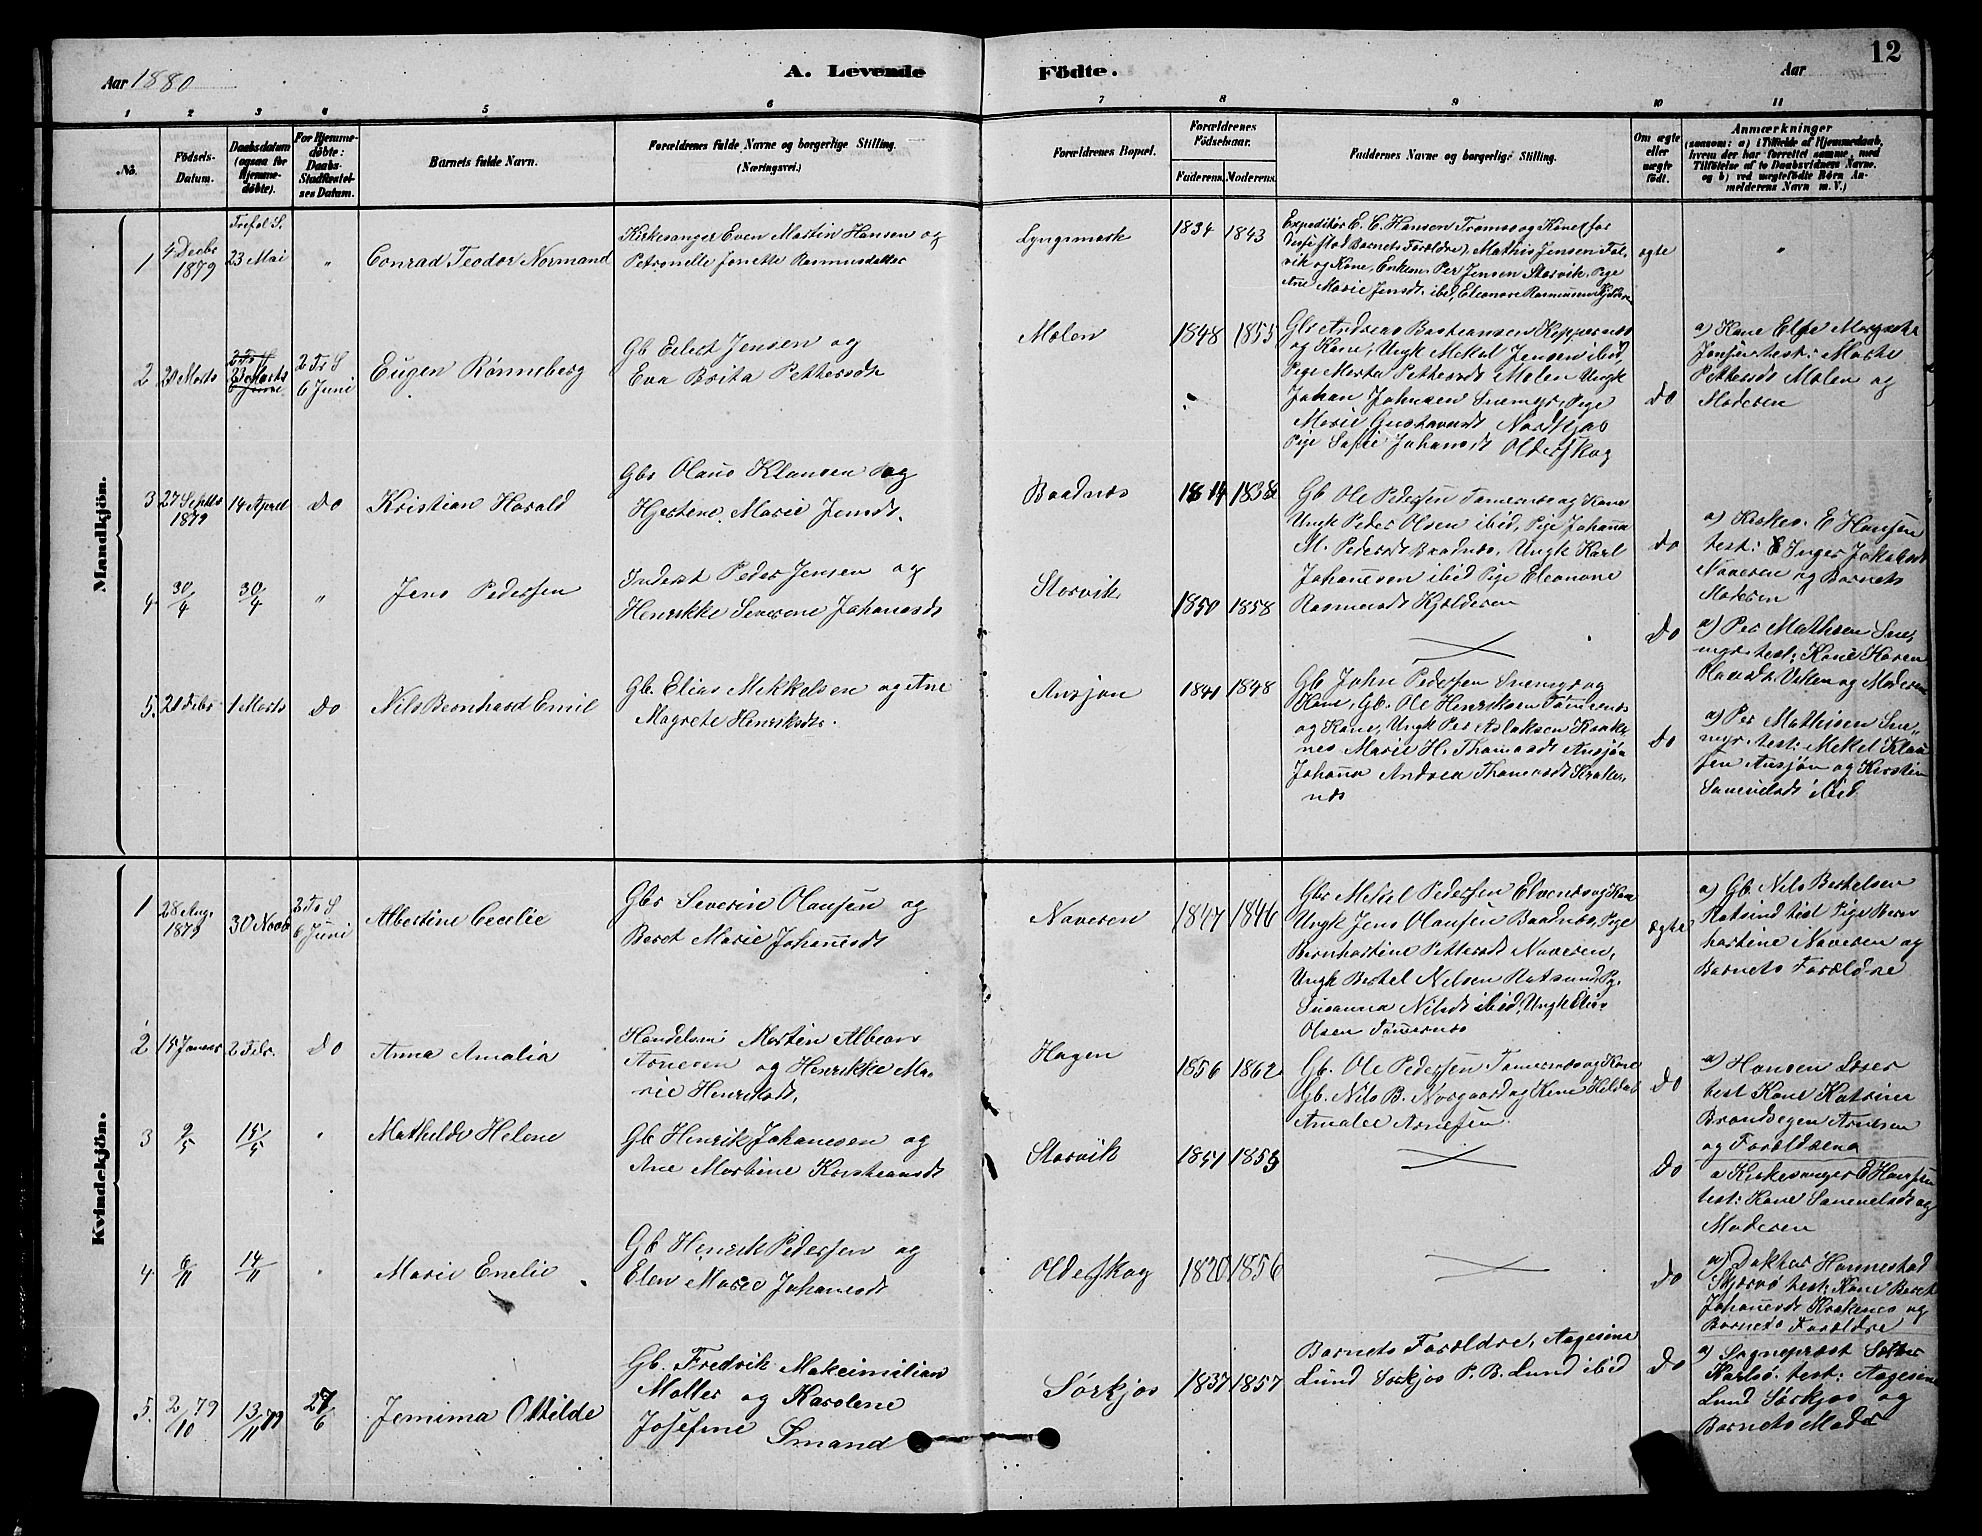 Aar 1880
A. Levende Fødte.
Aar
12
1 2 3 4 5 6 7 8 9 10 11
No.
Fødsels-Datum.
Daabsdatum (ogsaa for Hjemmedøbte).
For Hjemmedøbte: Daabs-Stadfæstelses Datum.
Barnets fulde Navn.
Forældrenes fulde Navne og borgerlige Stilling. (Næringsvei.)
Forældrenes Bopæl.
Forældrenes Fødselsaar.
Faderens. Moderens.
Faddernes Navne og borgerlige Stilling.
Om ægte eller uægte født.
Anmærkninger
(saasom: a) i Tilfælde af Hjemmedaab, hvem der har forrettet samme, med Tilføielse af to Daabsvidners Navne, og b) ved uægtefødte Børn Anmelderens Navn m. V.)
Mandkjøn.
1
4 Decbr 1879
Trefol S. 23 Mai
"
Conrad Teodor Normand
Kirkesanger Even Martin Hansen og
Petronelle Jonette Rasmusdatter
Lyngsmark
1834 1843
Expeditør E. C. Hansen Tromsø og Kone (for
Barnets Forældre) Mathis Jensen
vik og Kone, Enkem. Per Jensen Storvik, Pige
Ane Marie Jensdt. ibid, Eleonore Rasmussen
ægte
"
2
20 Marts
23 Marts
2 Tr S 6 Juni
Eugen Rønneberg
Gb Eilert Jensen og
Eva Brita Pettersdtr
Molen
1848 1855
Gbr Andreas Bastiansen Keppernæs
og Kone, Ungk Mekel Jensen ibid,
Pige Marta Pettersdt Molen Ungk
Johan Johnsen Snemyr, Pige
Marie Gustavsdt Nordkjos
Pige Sofie Johansdt Olderskog
Do
a) Kone Else Margreta
Jensen test: Marte
Pettersdt Molen og
Moderen
3
27 Septbr 1879
14 April
Do
Kristian Harald
Gbr Olaus Klausen og
Hjertine Marie Jensdt.
Baadnæs
1814 1838
Gb Ole Pedersen Tømernes og Kone
Ungk Peder Olsen ibid, Pige Johanna
M. Pedersdt Baadnæs, Ungk Karl
Johannesen ibid Pige Eleonone
Rasmusdt Kjølderen
Do
a) Kirkes. E Hansen
test: Inger Jakobsdt
Naveren og Barnets
Moderen
4
30/4
30/4
"
Jens Pedersen
Inderst Peder Jensen og
Henrikke Severine Johansdt
Storvik
1850 1858
Do
a) Per Mathisen Sne-
myr test: Kone Karen
Olausdt Urken og Moderen
5.
21 Febr
1 Marts
Do
Nils Bernhard Emil
Gb. Elias Mikkelsen og Ane
Magrete Henriksdtr.
Ansjøn
1841 1848
Gb John Pedersen Snemyr og
Kone, Gb. Ole Henriksen Tømernes
og Kone, Ungk Per Aslaksen Kraake-
nes Marie H. Thomasdt Ansjøn
Johanna Andrea Thomasdt Krake-
næs
Do
a) Per Mathisen Sne-
myr test: Mekel Klau
sen Ansjøn og Kirstin
Samuelsdt ibid
Kvindekjøn.
1
28 Aug. 1879
30 Novb
2 Tr S 6 Juni
Albertine Cecelie
Gbr Severin Olausen og
Beret Marie Johannesdt
Naveren
1847 1846
Gbr Mekel Pedersen Elvenes og Kone
Ungk Jens Olausen Baadnæs, Pige
Bernhartine Pettersdt Naveren,
Ungk Bertel Nilsen Ratsund, Pg.
Susanna Nilsdt ibid, Ungk Elias
Olsen Tømernes
ægte
a) Gb. Nils Bertelsen
Ratsund test Pige Bern
hartine Naveren og
Barnets Forældre
2
15 Januar
2 Febr.
Do
Anna Amalia
Handelsm Martin Albean
Arnesen og Henrikke Ma-
rie Henriksdt.
Hagen
1856 1862
Gb. Ole Pedersen Tømernes og Kone
Gb. Nils B. Norgaard og Kone Hilda
Amalie Arnesen.
Do
a) Hansen
test Kone Katrine
Brandvegen Arnesen
og Forældrene
3
9/5
15/5
"
Mathilde Helene
Gb Henrik Johannesen og
Ane Martine Kristiansdt
Storvik
1851 1855
Do
a Kirkesanger E Hansen
test: Kone Samuelsdt og
Moderen
4.
6/11
14/11
"
Marie Emelie
Gb Henrik Pedersen og
Elen Marie Johannesdt
Olderskog
1820 1856
Do
a) Doktor Hannestad
Skjervø test: Kone Beret
Johannesdt Krakenes og
Barnets Forældre
5.
2/10 79
13/11 79
27/6
Jemima Ottilde
Gb. Fredrik Makcimilian
Moller og Karolene
Josefine Smand
Sørkjos
1837 1857
Barnets Forældre, Aagesine
Lund Sørkjos P. B. Lund ibid
Do
a) Sognepræst
Karlsø test: Aagesine
Lund Sørkjos og
Barnets Moder